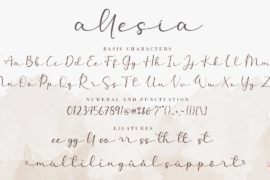 allesia
BASIC CHARACTERS
Aa Bb Cc Dd Ee Ff Gg Hh Ii Jj Kk Ll Mm
Nn Oo Pp Qq Rr Ss Tt Uu Vv Ww Xx Yy Zz
NUMERAL AND PUNCTUATION
LIGATURES
multilingual support